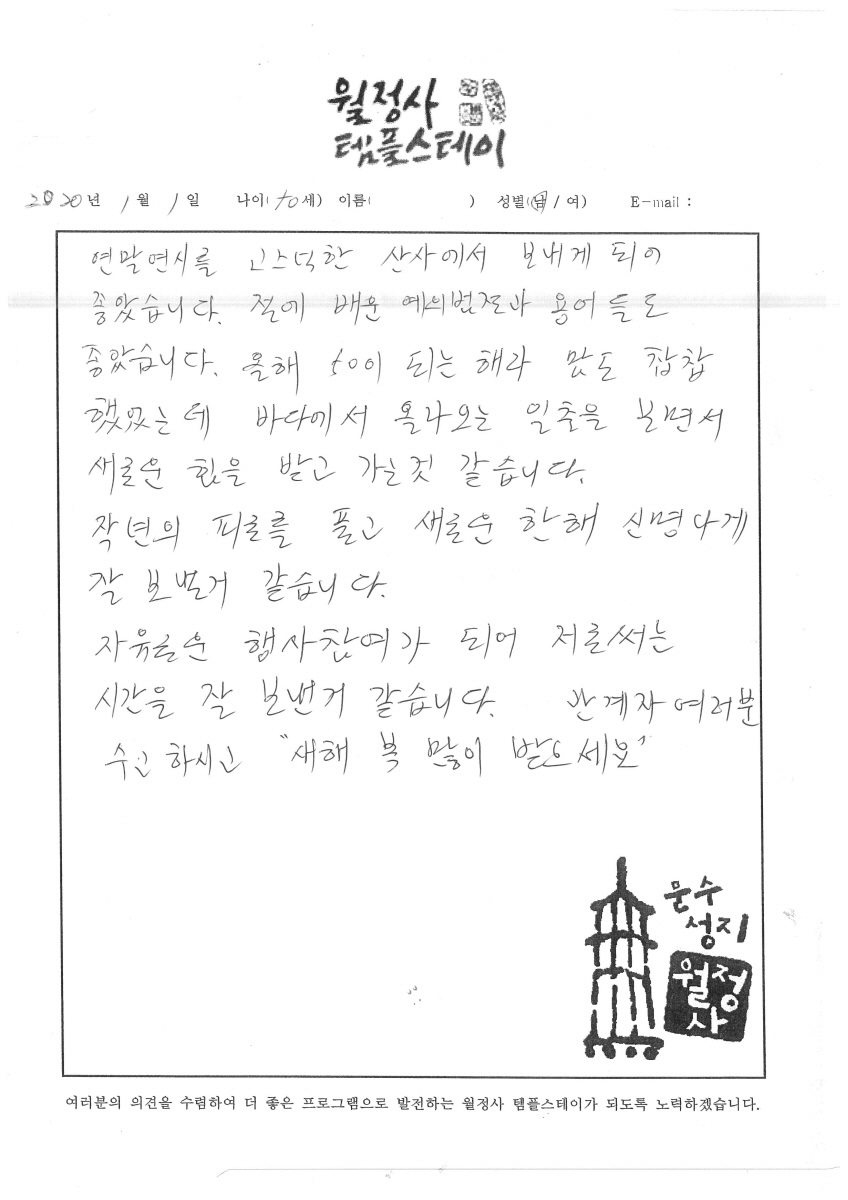 월정사
템플스테이
2020년 1월 1일 나이(50세) 이름( ) 성별(남/여) E-mail :
연말연시를 고스덕한 산사에서 보내게 되어
좋았습니다. 절에 배운 예의범절과 용어들도
좋았습니다. 올해 50이 되는 해라 맘도 찹찹
했었는데 바다에서 올라오는 일출을 보면서
새로운 힘을 받고 가는것 같습니다.
작년의 피로를 풀고 새로운 한해 신명나게
잘 보낼거 같습니다.
자유로운 행사참여가 되어 저로써는
시간을 잘 보낸거 같습니다. 관계자 여러분
수고하시고 "새해 복 많이 받으세요"
문수
성지
월정
사
여러분의 의견을 수렴하여 더 좋은 프로그램으로 발전하는 월정사 템플스테이가 되도록 노력하겠습니다.